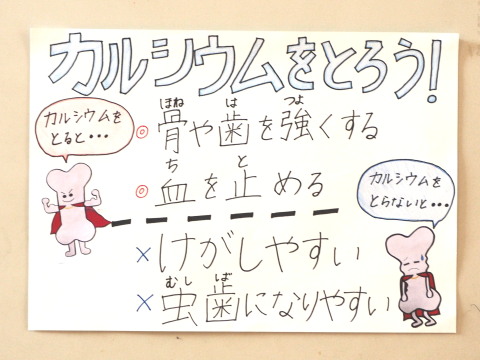 カルシウムをとろう!
カルシウムを
とると・・・
ほね は つよ
◎ 骨や歯を強くする
ち と
◎ 血を止める
カルシウムを
とらないと・・・
× けがしやすい
むし ば
× 虫歯になりやすい